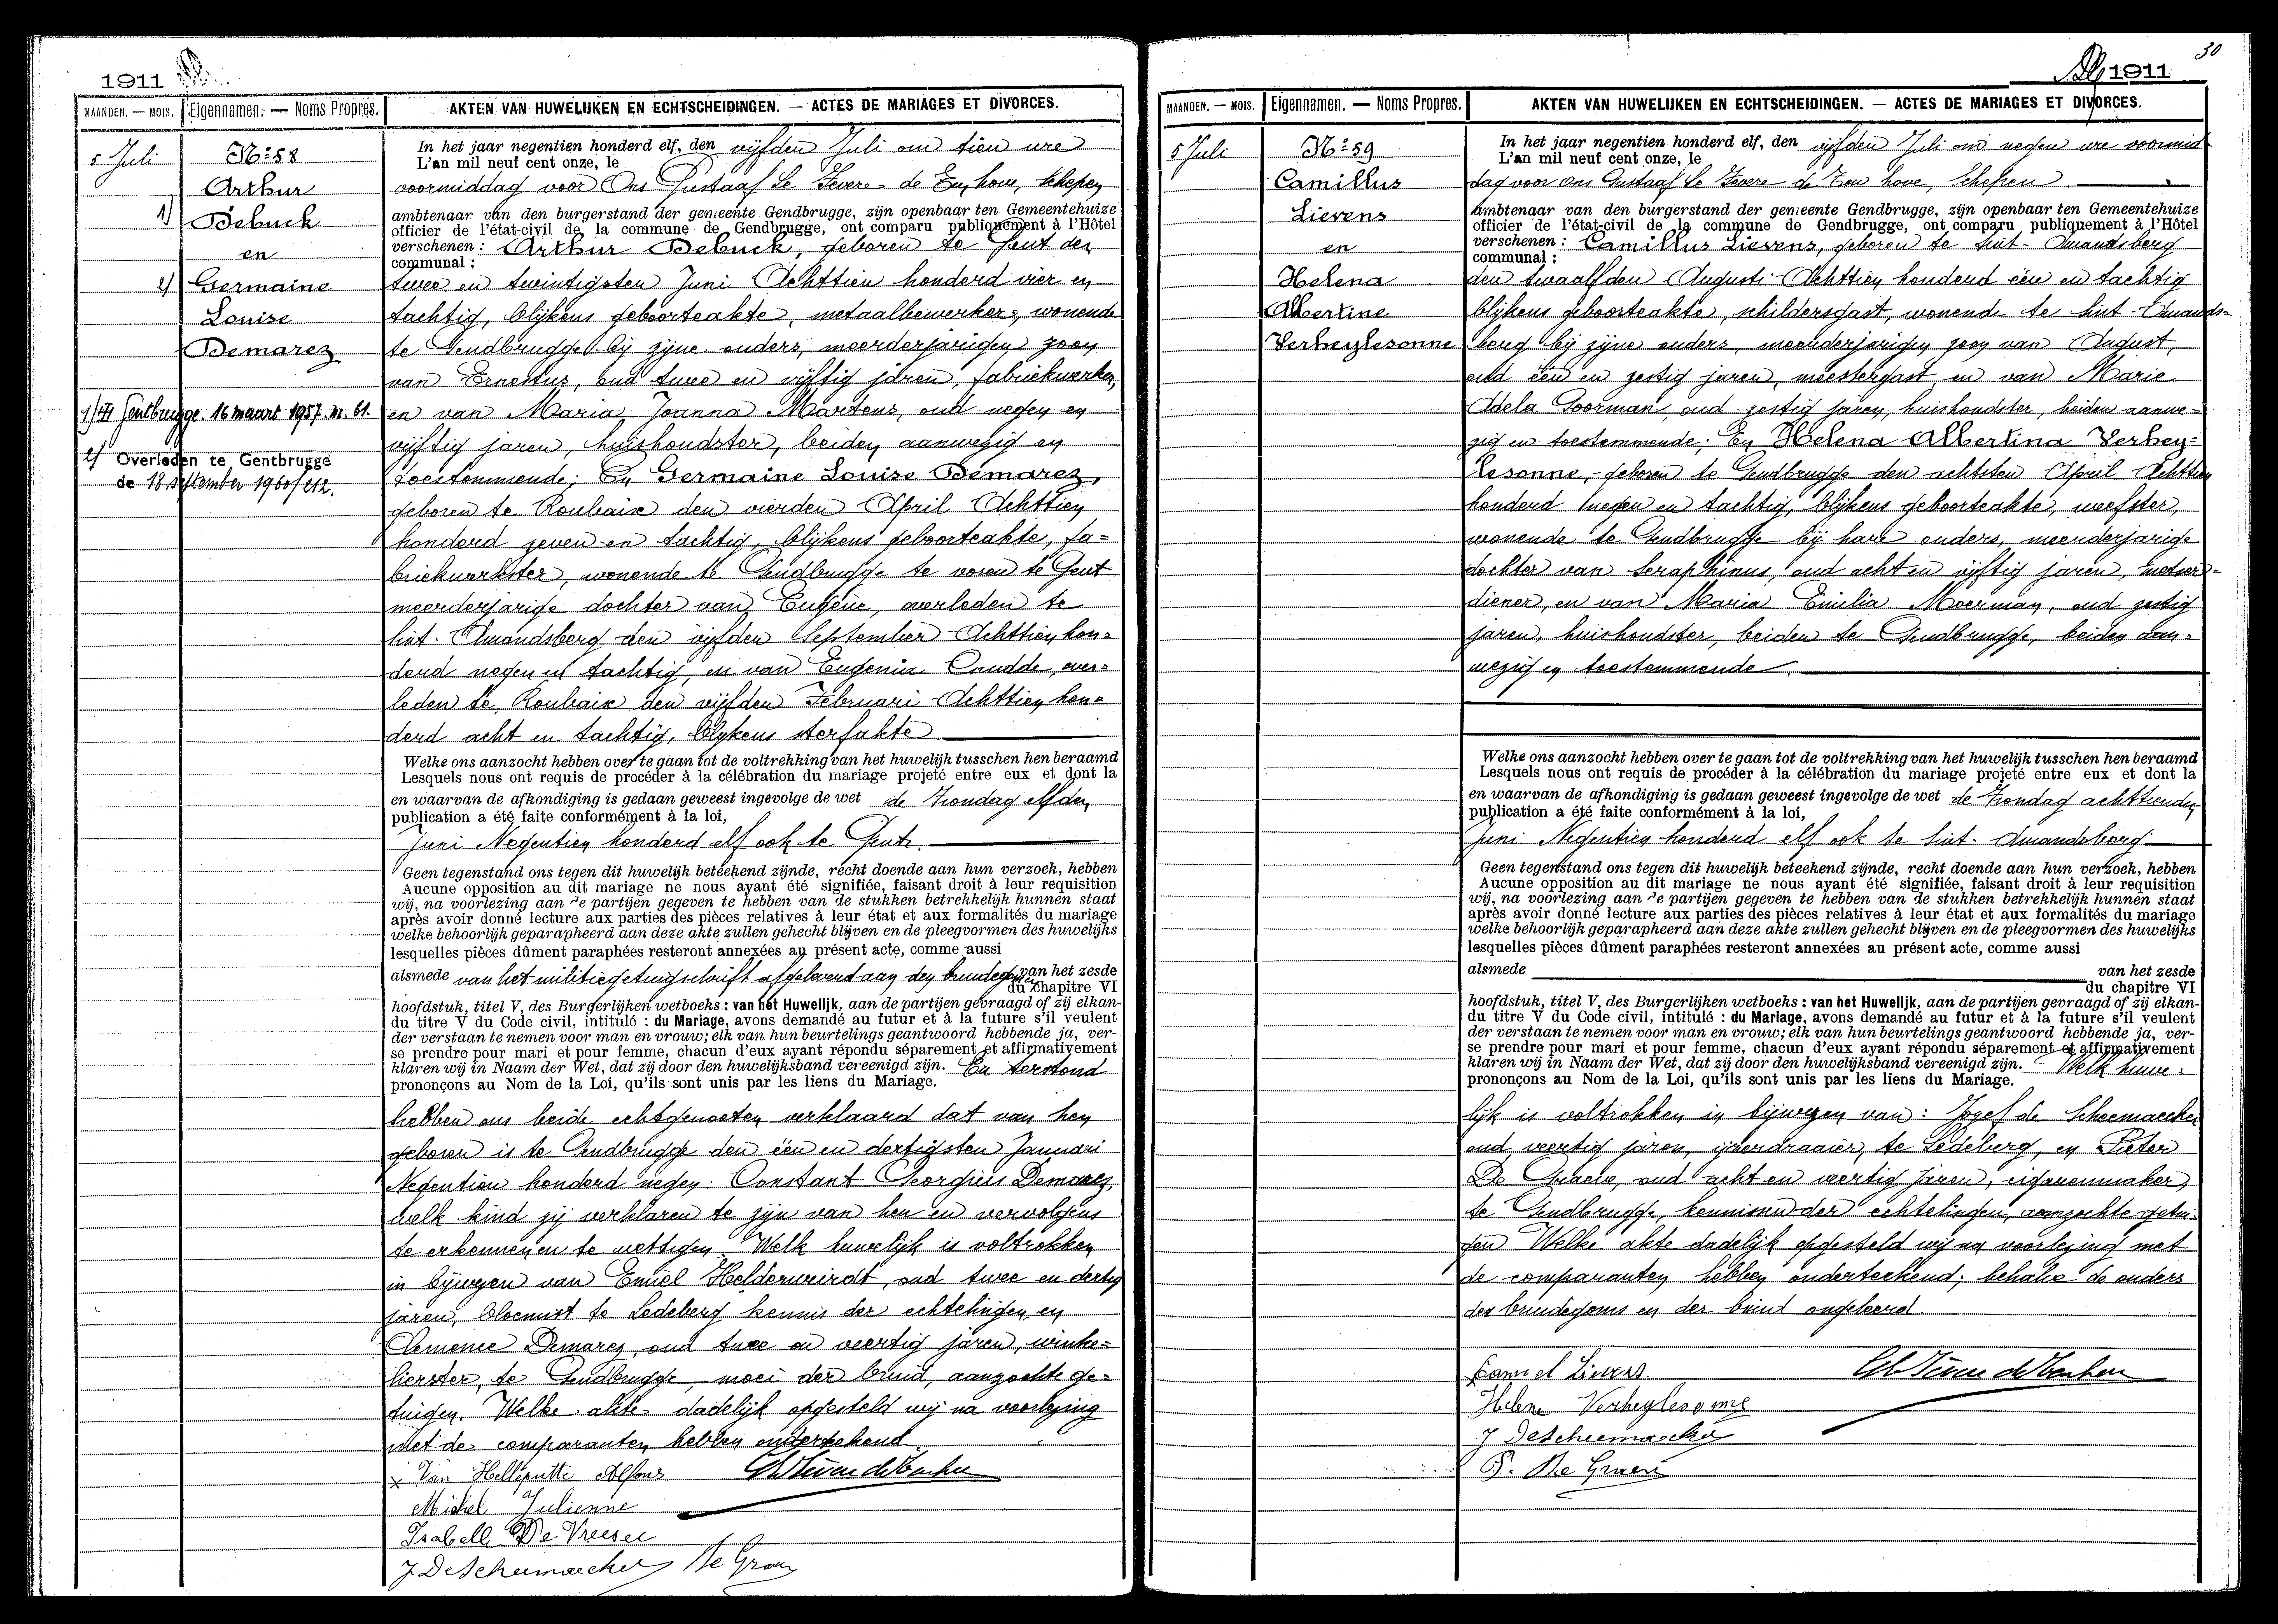 1911
MAANDEN. — MOIS.
Eigennamen. — Noms Propres.
AKTEN VAN HUWELIJKEN EN ECHTSCHEIDINGEN. — ACTES DE MARIAGES ET DIVORCES.
5 Juli
No 58
Arthur
1) Debuck
en
2) Germaine
Louise
Demarez
1) Gentbrugge. 16 maart 1957. n. 61.
2) Overleden te Gentbrugge
de 18 september 1960/212.
In het jaar negentien honderd elf, den vijfden Juli om tien ure
L'an mil neuf cent onze, le
voormiddag voor Ons Gustaaf de Kerchove, Schepen
ambtenaar van den burgerstand der gemeente Gendbrugge, zijn openbaar ten Gemeentehuize
officier de l'état-civil de la commune de Gendbrugge, ont comparu publiquement à l'Hôtel
verschenen : Arthur Debuck, geboren te Gent den
communal :
twee en twintigsten Juni Achttien honderd vier en
tachtig, blijkens geboorteakte, metaalbewerker, wonende
te Gendbrugge bij zijne ouders, meerderjarigen zoon
van Ernestus, oud twee en vijftig jaren, fabriekwerker,
en van Maria Joanna Martens, oud negen en
vijftig jaren, huishoudster, beiden aanwezig en
toestemmende; En Germaine Louise Demarez,
geboren te Roubaix den vierden April Achttien
honderd zeven en tachtig, blijkens geboorteakte, fa=
briekwerkster, wonende te Gendbrugge te voren te Gent
meerderjarige dochter van Eugène, overleden te
Sint-Amandsberg den vijfden September Achttien hon=
derd negen en tachtig, en van Eugenia Caudde, over=
leden te Roubaix den vijfden Februari Achttien hon=
derd acht en tachtig, blijkens sterfakte
Welke ons aanzocht hebben over te gaan tot de voltrekking van het huwelijk tusschen hen beraamd
Lesquels nous ont requis de procéder à la célébration du mariage projeté entre eux et dont la
en waarvan de afkondiging is gedaan geweest ingevolge de wet de Zondag elfden
publication a été faite conformément à la loi,
Juni Negentien honderd elf ook te Gent.
Geen tegenstand ons tegen dit huwelijk beteekend zijnde, recht doende aan hun verzoek, hebben
Aucune opposition au dit mariage ne nous ayant été signifiée, faisant droit à leur requisition
wij, na voorlezing aan de partijen gegeven te hebben van de stukken betrekkelijk hunnen staat
après avoir donné lecture aux parties des pièces relatives à leur état et aux formalités du mariage
welke behoorlijk geparapheerd aan deze akte zullen gehecht blijven en de pleegvormen des huwelijks
lesquelles pièces dûment paraphées resteront annexées au présent acte, comme aussi
alsmede van het militiegetuigschrift afgeleverd aan den bruidegom van het zesde
du chapitre VI
hoofdstuk, titel V, des Burgerlijken wetboeks : van het Huwelijk, aan de partijen gevraagd of zij elkan-
du titre V du Code civil, intitulé : du Mariage, avons demandé au futur et à la future s'il veulent
der verstaan te nemen voor man en vrouw; elk van hun beurtelings geantwoord hebbende ja, ver-
se prendre pour mari et pour femme, chacun d'eux ayant répondu séparement et affirmativement
klaren wij in Naam der Wet, dat zij door den huwelijksband vereenigd zijn. En terstond
prononçons au Nom de la Loi, qu'ils sont unis par les liens du Mariage.
hebben ons beide echtgenooten verklaard dat van hen
geboren is te Gendbrugge den één en dertigsten Januari
Negentien honderd negen: Constant Georgius Demarez,
welk kind zij verklaren te zijn van hen en vervolgens
te erkennen en te wettigen. Welk huwelijk is voltrokken
in bijwezen van Emiel Helderweirdt, oud twee en dertig
jaren, bloemist te Ledeberg kennis der echtelingen, en
Clemence Demarez, oud twee en veertig jaren, winke=
lierster, te Gendbrugge, moei der bruid, aanzochte ge=
tuigen. Welke akte dadelijk opgesteld wij na voorlezing
met de comparanten hebben onderteekend.
Van Helleputte Alfons
Michel Julienne
Isabelle De Vreese
J DeScheemaecker De Graev
30
1911
MAANDEN. — MOIS.
Eigennamen. — Noms Propres.
AKTEN VAN HUWELIJKEN EN ECHTSCHEIDINGEN. — ACTES DE MARIAGES ET DIVORCES.
5 Juli
No 59
Camillus
Lievens
en
Helena
Albertine
Verheylesonne
In het jaar negentien honderd elf, den vijfden Juli om negen ure voormid
L'an mil neuf cent onze, le
dag voor ons Gustaaf, Schepen
ambtenaar van den burgerstand der gemeente Gendbrugge, zijn openbaar ten Gemeentehuize
officier de l'état-civil de la commune de Gendbrugge, ont comparu publiquement à l'Hôtel
verschenen : Camillus Lievens, geboren te Sint-Amandsberg
communal :
den twaalfden Augusti Achttien honderd één en tachtig
blijkens geboorteakte, schildersgast, wonende te Sint-Amands=
berg bij zijne ouders, meerderjarigen zoon van August,
oud één en zestig jaren, meestergast en van Marie
Adela Goorman oud zestig jaren, huishoudster, beiden aanwe=
zig en toestemmende; En Helena Albertina Verhey=
lesonne, geboren te Gendbrugge den achtsten April Achttien
honderd negen en tachtig, blijkens geboorteakte, weefster,
wonende te Gendbrugge bij hare ouders, meerderjarige
dochter van Seraphinus, oud acht en vijftig jaren, metser=
diener, en van Maria Emilia Moerman, oud zestig
jaren, huishoudster, beiden te Gendbrugge, beiden aan=
wezig en toestemmende
Welke ons aanzocht hebben over te gaan tot de voltrekking van het huwelijk tusschen hen beraamd
Lesquels nous ont requis de procéder à la célébration du mariage projeté entre eux et dont la
en waarvan de afkondiging is gedaan geweest ingevolge de wet de Zondag achttienden
publication a été faite conformément à la loi,
Juni Negentien honderd elf ook te Sint-Amandsberg
Geen tegenstand ons tegen dit huwelijk beteekend zijnde, recht doende aan hun verzoek, hebben
Aucune opposition au dit mariage ne nous ayant été signifiée, faisant droit à leur requisition
wij, na voorlezing aan de partijen gegeven te hebben van de stukken betrekkelijk hunnen staat
après avoir donné lecture aux parties des pièces relatives à leur état et aux formalités du mariage
welke behoorlijk geparapheerd aan deze akte zullen gehecht blijven en de pleegvormen des huwelijks
lesquelles pièces dûment paraphées resteront annexées au présent acte, comme aussi
alsmede van het zesde
du chapitre VI
hoofdstuk, titel V, des Burgerlijken wetboeks : van het Huwelijk, aan de partijen gevraagd of zij elkan-
du titre V du Code civil, intitulé : du Mariage, avons demandé au futur et à la future s'il veulent
der verstaan te nemen voor man en vrouw; elk van hun beurtelings geantwoord hebbende ja, ver-
se prendre pour mari et pour femme, chacun d'eux ayant répondu séparement et affirmativement
klaren wij in Naam der Wet, dat zij door den huwelijksband vereenigd zijn. Welk huwe=
prononçons au Nom de la Loi, qu'ils sont unis par les liens du Mariage.
lijk is voltrokken in bijwezen van: Jozef de Scheemaecker
oud veertig jaren, ijzerdraaier, te Ledeberg, en Pieter
De Graeve, oud acht en veertig jaren, cigarenmaker,
te Gendbrugge, kennissen der echtelingen, aanzochte getui=
gen Welke akte dadelijk opgesteld wij na voorlezing met
de comparanten hebben onderteekend; behalve de ouders
des bruidegoms en der bruid ongeleerd.
Camiel Lievens
Helene Verheylesonne
J DeScheemaecker
P. De Graeve